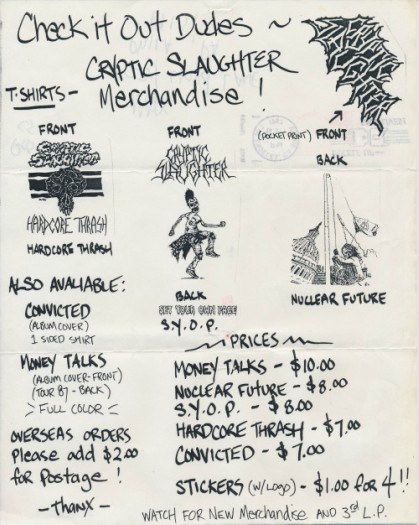 Check it Out Dudes ~
CRYPTIC SLAUGHTER
T-SHIRTS - Merchandise!
FRONT
CRYPTIC
SLAUGHTER
HARDCORE THRASH
HARDCORE THRASH
FRONT
CRYPTIC
SLAUGHTER
BACK
SET YOUR OWN PACE
S.Y.O.P.
(POCKET PRINT) FRONT
BACK
NUCLEAR FUTURE
ALSO AVALIABLE:
CONVICTED
(ALBUM COVER)
1 SIDED SHIRT
MONEY TALKS
(ALBUM COVER-FRONT)
(TOUR 87 - BACK)
> FULL COLOR <
OVERSEAS ORDERS
Please add $2.00
for Postage!
- Thanx -
PRICES
MONEY TALKS - $10.00
NUCLEAR FUTURE - $8.00
S.Y.O.P. - $8.00
HARDCORE THRASH - $7.00
CONVICTED - $7.00
STICKERS (W/LOGO) - $1.00 for 4!!
WATCH FOR NEW Merchandise AND 3rd L.P.